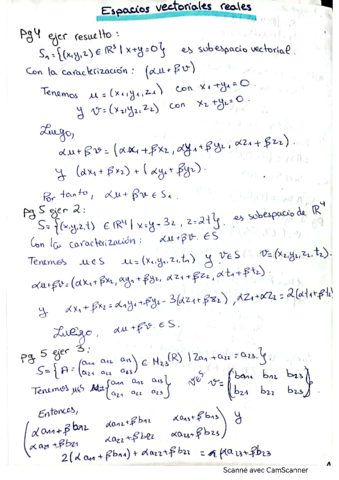 Espacios vectoriales reales
Pg 4 ejer resuelto:
S₁={(x,y,z) ∈ ℝ³ | x+y=0} es subespacio vectorial.
Con la caracterización: (αu+βv)
Tenemos u=(x₁,y₁,z₁) con x₁+y₁=0
y v=(x₂,y₂,z₂) con x₂+y₂=0.
Luego,
αu+βv=(αx₁+βx₂, αy₁+βy₂, αz₁+βz₂)
y (αx₁+βx₂)+(αy₁+βy₂).
Por tanto, αu+βv ∈ S₁
pg 5 ejer 2:
S={(x,y,z,t) ∈ ℝ⁴ | x=y-3z, z=2t} es subespacio de ℝ⁴
Con la caracterización: αu+βv ∈ S
Tenemos u∈S u=(x₁,y₁,z₁,t₁) y v∈S v=(x₂,y₂,z₂,t₂).
αu+βv=(αx₁+βx₂, αy₁+βy₂, αz₁+βz₂, αt₁+βt₂)
y αx₁+βx₂=αy₁+βy₂-3(αz₁+βz₂), αz₁+αz₂=2(αt₁+βt₂)
Luego, αu+βv ∈ S.
pg 5 ejer 3:
S={A=(a₁₁ a₁₂ a₁₃
a₂₁ a₂₂ a₂₃) ∈ M₂₃(ℝ) | 2a₁₁+a₂₂=a₂₃}
Tenemos u=(a₁₁ a₁₂ a₁₃
a₂₁ a₂₂ a₂₃) v=(b₁₁ b₁₂ b₂₃
b₂₁ b₂₂ b₂₃)
Entonces,
(αa₁₁+βb₁₂ αa₁₂+βb₁₂ αa₁₃+βb₁₃
αa₂₁+βb₂₁ αa₂₂+βb₂₂ αa₂₃+βb₂₃) y
2(αa₁₁+βb₁₁)+αa₂₂+βb₂₂ = αa₂₃+βb₂₃
Scanné avec CamScanner